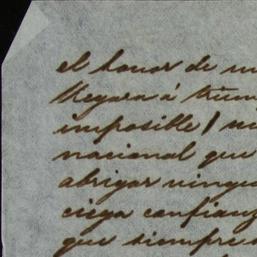 el honor de
llegara á
imposible
nacional que
abrigar
ciega confianz
que siempre